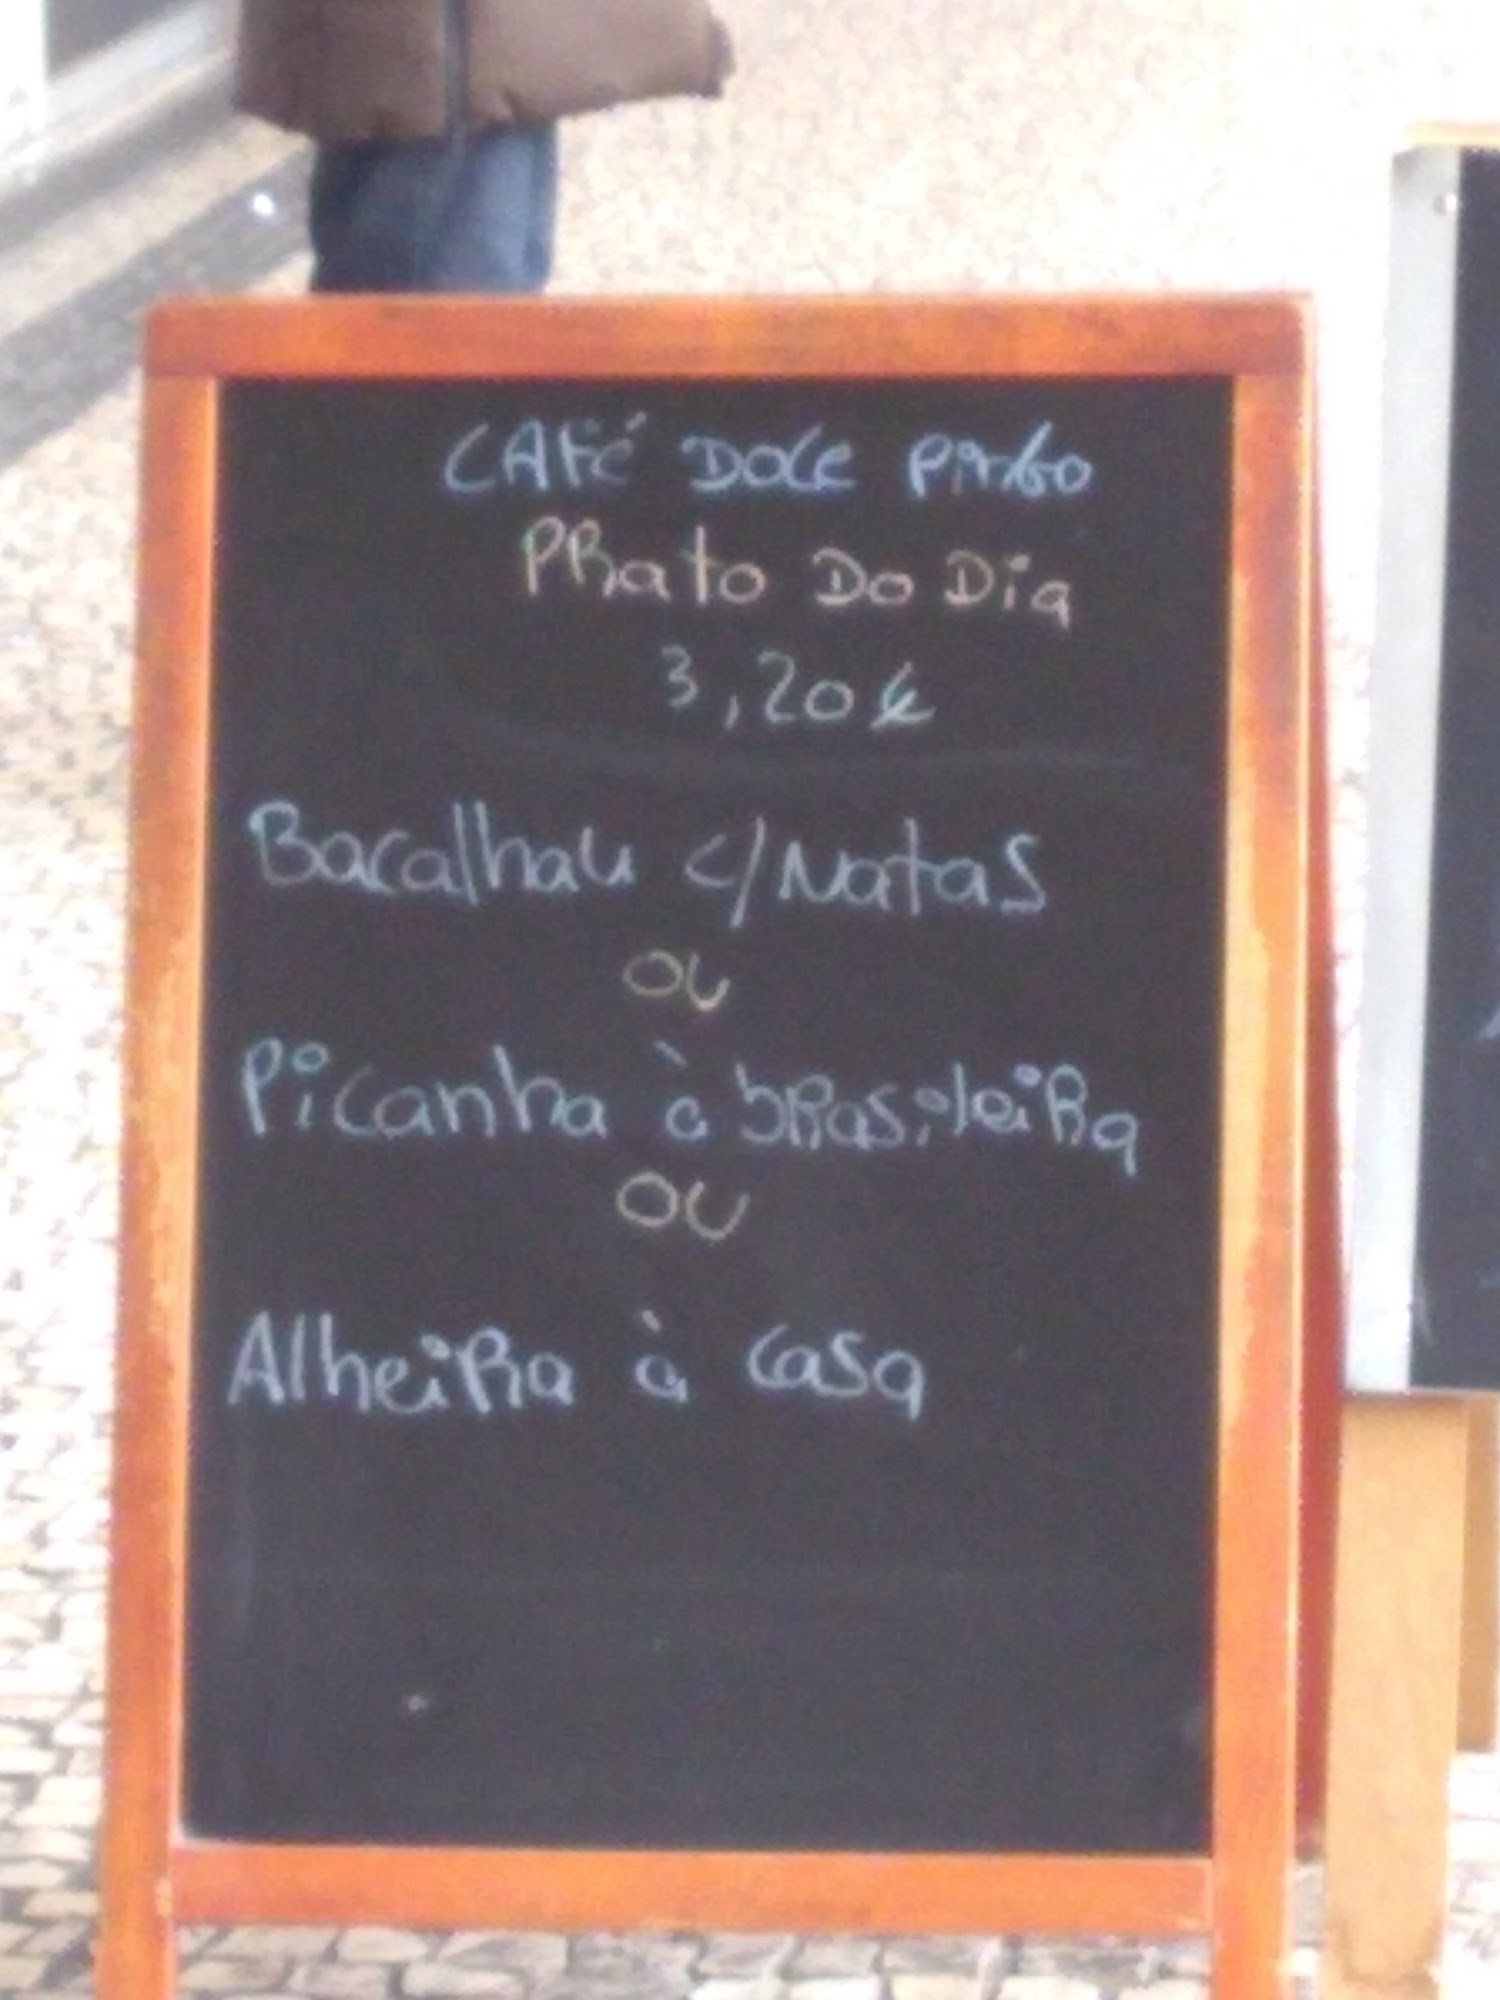 CAFÉ DOCE
PRato Do Dia
3,20€
Bacalhau c/Natas
ou
Picanha à brasileira
ou
Alheira à casa